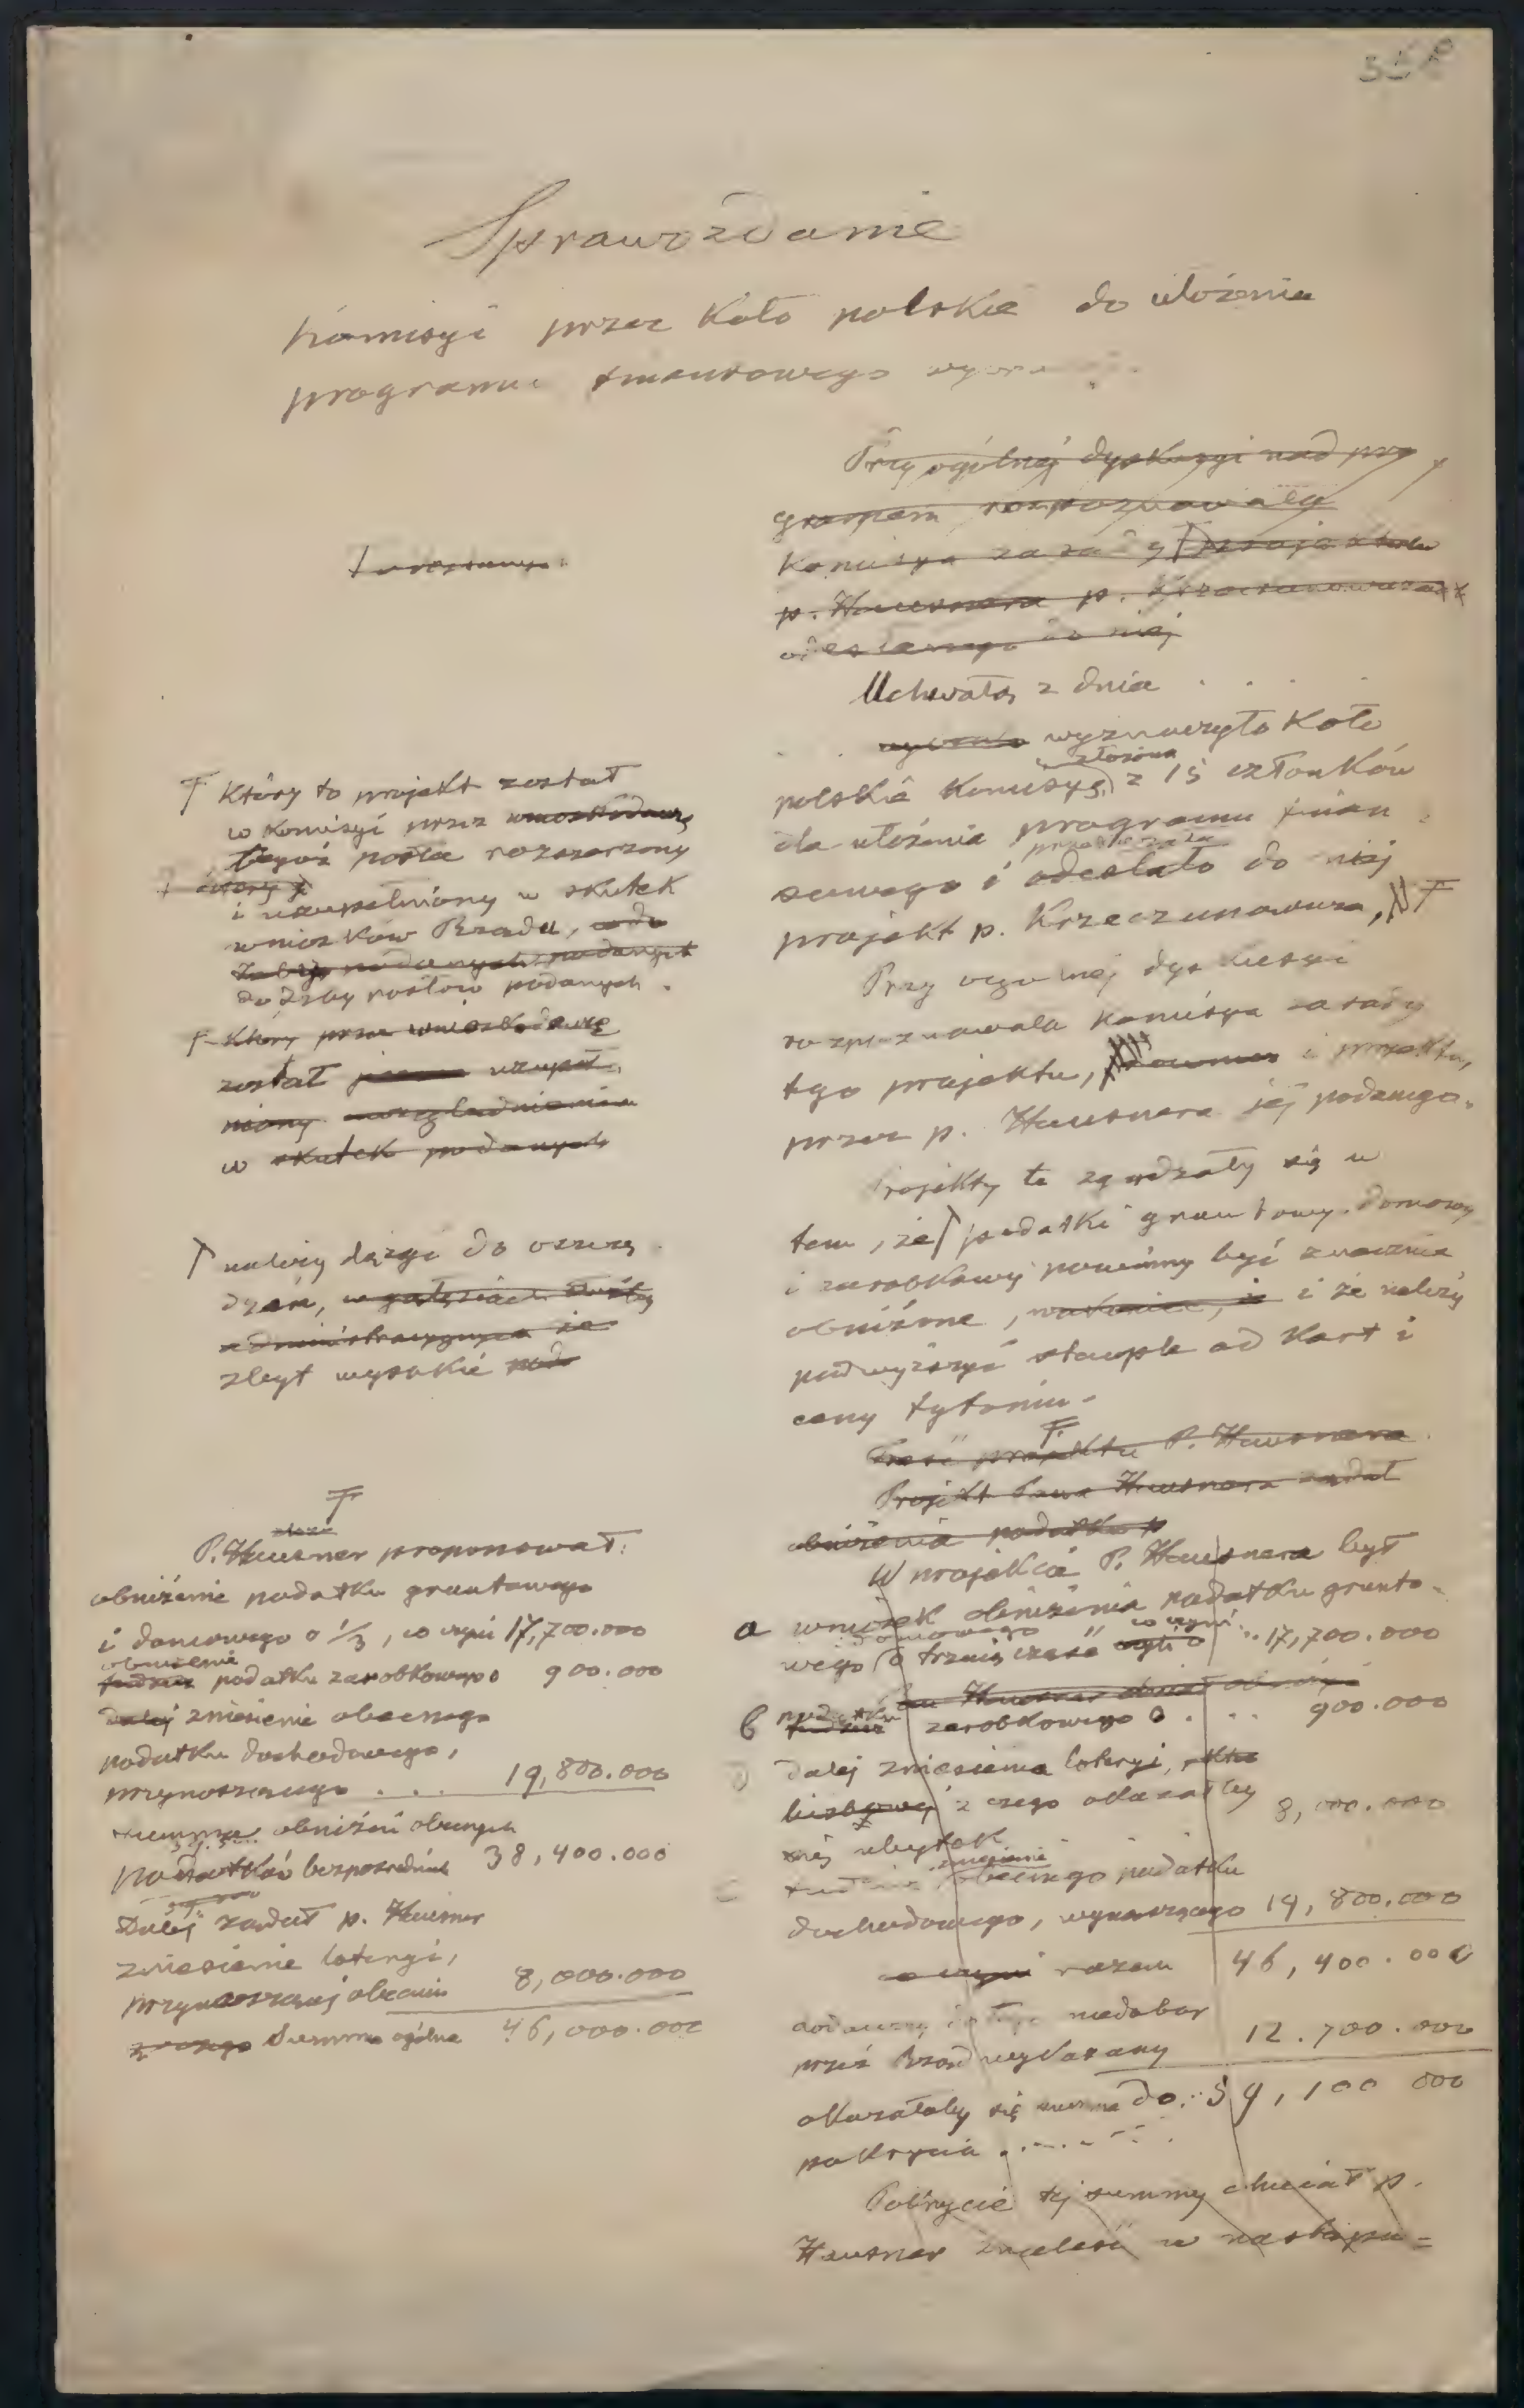 Sprawozdanie
Komisyi przez Koło polskie do ułożenia
programu finansowego
Przy ogólnej dyskusyi nad pro
gramem rozpoznawała
Komisya zasady projektu
p. Hausnera p.
odesłanego do niej
Uchwałą z dnia . . .
wyznaczyło Koło
złożoną
polskie Komisyę z 15 członków
dla ułożenia programu finan
sowego i odesłało do niej
projekt p. Krzeczunowicza, F
Przy ogólnej dyskusyi
rozpoznawała komisya zasady
tego projektu, i projektu,
przez p. Hausnera jej podanego.
Projekty te zgadzały się w
tem, że podatki gruntowy, domowy
i zarobkowy powinny być znacznie
obniżone, i że należy
podwyższyć stemple od Kart i
ceny tytoniu.
F
Treść projektu P. Hausnera
Projekt Pana Hausnera żądał
obniżenia podatku
W projekcie P. Hausnera był
a wniosek obniżenia podatku grunto-
domowego co czyni
wego o trzecią część czyli o .. 17,700.000
podatku
b tudzież zarobkowego o . . . . 900.000
dalej zniesienia loteryi,
z czego okazałby 8,000.000
się ubytek
zniesienie
tudzież obecnego podatku
dochodowego, wynoszącego 19,800.000
co czyni razem 46,400.000
dodawszy do tego niedobor
przez Rząd wykazany 12.700.000
okazałaby się summa do 59,100 000
pokrycia . . . . .
Pokrycie tej summy chciał p.
Hausner znaleść w nastepu=
F Który to projekt został
w Komisyi przez wnioskodawcę
tegoż posła rozszerzony
i uzupełniony w skutek
wniosków Rządu,
do Izby posłów podanych.
F Który przez wnioskodawcę
został uzupeł
niony uwzględnienia
w skutek podanych
należy dążyć do oszczę
dzeń, w gałęziach służby
administracyjnych
zbyt wysokie
F
P. Hausner proponował:
obniżenie podatku gruntowego
i domowego o 1/3, co czyni 17,700.000
obniżenie
tudzież podatku zarobkowego o 900.000
dalej zniesienie obecnego
podatku dochodowego,
przynoszącego . . . 19,800.000
summa obniżeń obecnych
podatków bezpośrednich 38,400.000
Dalej żądał p. Hausner
zniesienie loteryi,
przynoszącej obecnie 8,000.000
z czego Summa ogólna 46,000.000